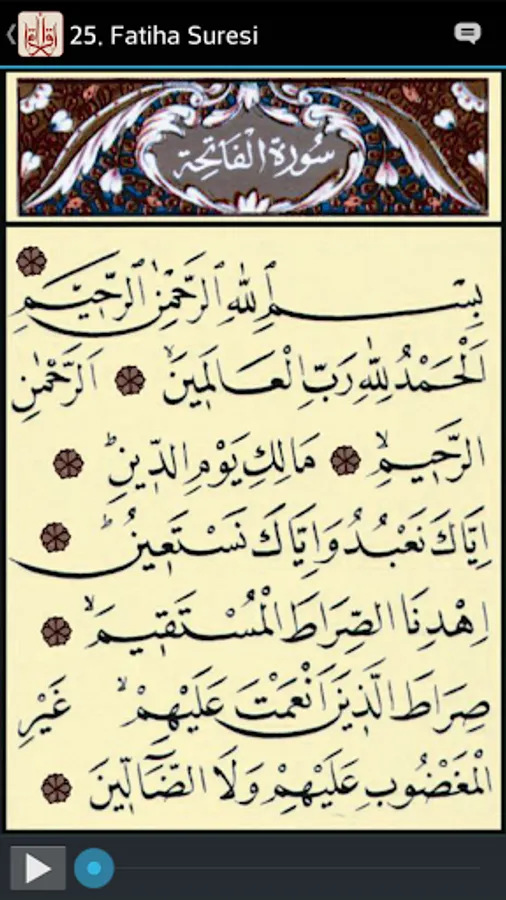 25. Fatiha Suresi
سُورَةُ الْفَاتِحَةِ
بِسْمِ اللهِ الرَّحْمٰنِ الرَّحِيمِ
اَلْحَمْدُ لِلّٰهِ رَبِّ الْعَالَمِينَۙ اَلرَّحْمٰنِ
الرَّحِيمِۙ مَالِكِ يَوْمِ الدِّينِۜ
اِيَّاكَ نَعْبُدُ وَاِيَّاكَ نَسْتَعِينُۜ
اِهْدِنَا الصِّرَاطَ الْمُسْتَقِيمَۙ
صِرَاطَ الَّذِينَ اَنْعَمْتَ عَلَيْهِمْۙ غَيْرِ
الْمَغْضُوبِ عَلَيْهِمْ وَلَا الضَّٓالِّينَ